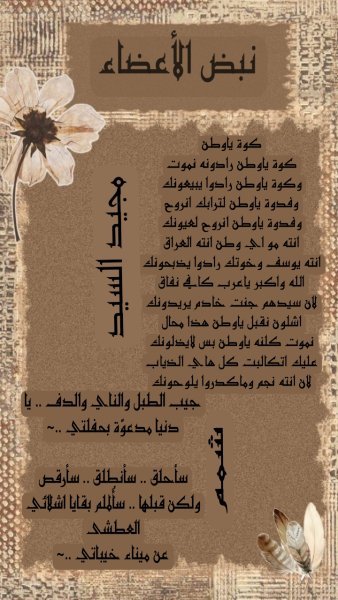 نبض الأعضاء
كوة ياوطن
كوة ياوطن رادونه نموت
وكوة ياوطن رادوا يبيعونك
وفدوة ياوطن لترابك انروح
وفدوة ياوطن انروح لعيونك
انته مو اي وطن انته العراق
انته يوسف وخوتك رادوا يذبحونك
الله واكبر ياعرب كافي نفاق
لان سيدهم جنت خادم يريدونك
اشلون نقبل ياوطن هذا محال
نموت كلنه ياوطن بس لايذلونك
عليك اتكالبت كل هاي الذياب
لان انته نجم وماكدروا يلوحونك
مجيد السيد
جيب الطبل والناي والدف .. يا
دنيا مدعوّة بحفلتي ..~
سأحلق .. سأنطلق .. سأرقص
ولكن قبلها .. سأُلملم بقايا اشلائي
العطشى
عن ميناء خيباتي ..~
شمم